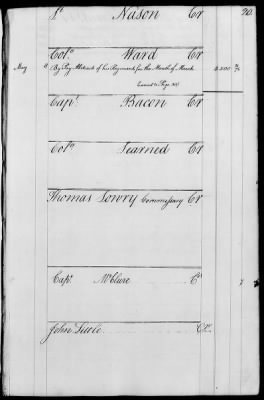 Lt Nason Cr 20.
Colo. Ward Cr
May 8 By Pay Abstract of his Regiment for the Month of March
Capt. Bacon Cr
Colo. Learned Cr
Thomas Lowry Commissary Cr
Capt. McClure Cr
John Little Cr.